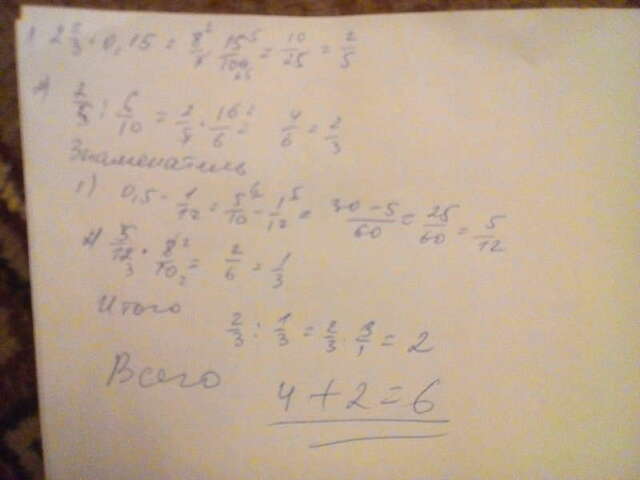 1. 2 2/3 · 0,15 = 8/3 · 15/100 = 10/25 = 2/5
2) 2/5 : 6/10 = 2/5 · 10/6 = 4/6 = 2/3
Знаменатель
1) 0,5 - 1/12 = 5/10 - 1/12 = 30-5/60 = 25/60 = 5/12
2) 5/12 · 8/10 = 2/6 = 1/3
Итого
2/3 : 1/3 = 2/3 · 3/1 = 2
Всего
4+2=6